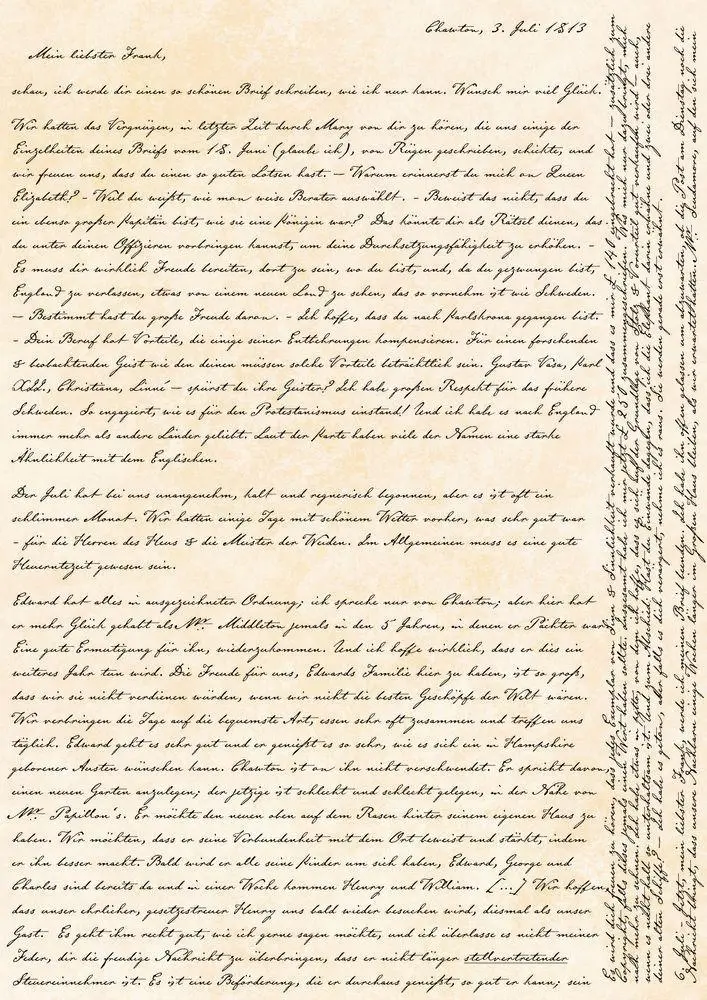 Chawton, 3. Juli 1813
Mein liebster Frank,
schau, ich werde dir einen so schönen Brief schreiben, wie ich nur kann. Wünsch mir viel Glück.
Wir hatten das Vergnügen, in letzter Zeit durch Mary von dir zu hören, die uns einige der
Einzelheiten deines Briefs vom 18. Juni (glaube ich), von Rügen geschrieben, schickte, und
wir freuen uns, dass du einen so guten Lotsen hast. — Warum erinnerst du mich an Queen
Elizabeth? - Weil du weißt, wie man weise Berater auswählt. - Beweist das nicht, dass du
ein ebenso großer Kapitän bist, wie sie eine Königin war? Das könnte dir als Rätsel dienen, das
du unter deinen Offizieren vorbringen kannst, um deine Durchsetzungsfähigkeit zu erhöhen. -
Es muss dir wirklich Freude bereiten, dort zu sein, wo du bist, und, da du gezwungen bist,
England zu verlassen, etwas von einem neuen Land zu sehen, das so vornehm ist wie Schweden.
— Bestimmt hast du große Freude daran. - Ich hoffe, dass du nach Karlskrona gegangen bist.
- Dein Beruf hat Vorteile, die einige seiner Entbehrungen kompensieren. Für einen forschenden
& beobachtenden Geist wie den deinen müssen solche Vorteile beträchtlich sein. Gustav Vasa, Karl
XII., Christiana, Linné — spürst du ihre Geister? Ich habe großen Respekt für das frühere
Schweden. So engagiert, wie es für den Protestanismus einstand! Und ich habe es nach England
immer mehr als andere Länder geliebt. Laut der Karte haben viele der Namen eine starke
Ähnlichkeit mit dem Englischen.
Der Juli hat bei uns unangenehm, kalt und regnerisch begonnen, aber es ist oft ein
schlimmer Monat. Wir hatten einige Tage mit schönem Wetter vorher, was sehr gut war
- für die Herren des Heus & die Meister der Weiden. Im Allgemeinen muss es eine gute
Heuerntezeit gewesen sein.
Edward hat alles in ausgezeichneter Ordnung; ich spreche nur von Chawton; aber hier hat
er mehr Glück gehabt als Mr. Middleton jemals in den 5 Jahren, in denen er Pächter war.
Eine gute Ermutigung für ihn, wiederzukommen. Und ich hoffe wirklich, dass er dies ein
weiteres Jahr tun wird. Die Freude für uns, Edwards Familie hier zu haben, ist so groß,
dass wir sie nicht verdienen würden, wenn wir nicht die besten Geschöpfe der Welt wären.
Wir verbringen die Tage auf die bequemste Art, essen sehr oft zusammen und treffen uns
täglich. Edward geht es sehr gut und er genießt es so sehr, wie es sich ein in Hampshire
geborener Austen wünschen kann. Chawton ist an ihn nicht verschwendet. Er spricht davon,
einen neuen Garten anzulegen; der jetzige ist schlecht und schlecht gelegen, in der Nähe von
Mr. Papillon's. Er möchte den neuen oben auf dem Rasen hinter seinem eigenen Haus zu
haben. Wir möchten, dass er seine Verbundenheit mit dem Ort beweist und stärkt, indem
er ihn besser macht. Bald wird er alle seine Kinder um sich haben, Edward, George und
Charles sind bereits da und in einer Woche kommen Henry und William. [...] Wir hoffen,
dass unser ehrlicher, gesetzestreuer Henry uns bald wieder besuchen wird, diesmal als unser
Gast. Es geht ihm recht gut, wie ich gerne sagen möchte, und ich überlasse es nicht meiner
Feder, dir die freudige Nachricht zu überbringen, dass er nicht länger stellvertretender
Steuereinnehmer ist. Es ist eine Beförderung, die er durchaus genießt, so gut er kann; sein
Es wird dich freuen zu hören, dass jedes Exemplar von Sinn & Sinnlichkeit verkauft wurde und dass es mir £ 140 eingebracht hat — zusätzlich zum
Copyright, falls dieses jemals einen Wert haben sollte. Insgesamt habe ich mir jetzt £ 250 zusammengeschrieben. Was mich nur dazu bringt, mich
nach mehr zu sehnen. Ich habe etwas in petto, von dem ich hoffe, dass es sich auf der Grundlage von Stolz & Vorurteil gut verkaufen wird — auch,
6. Juli - Jetzt, mein liebster Frank, werde ich meinen Brief beenden. Ich habe ihn offen gelassen um abzuwarten, ob die Post am Dienstag noch die